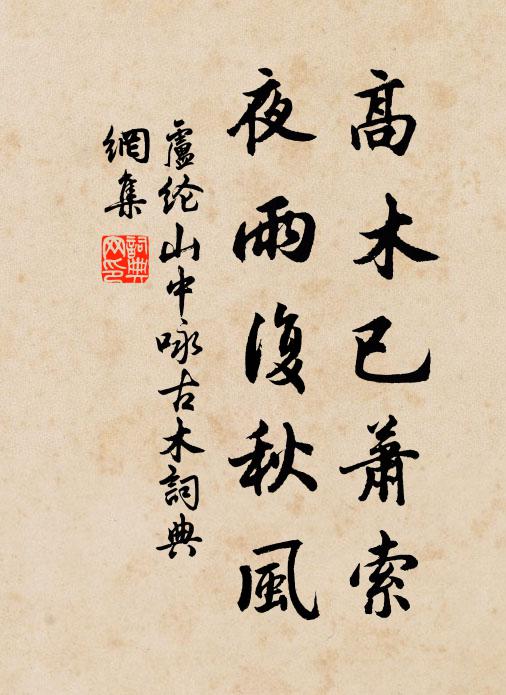 高木已蕭索
夜雨復秋風
盧纶山中咏古木詞典
網集
詞典
网印